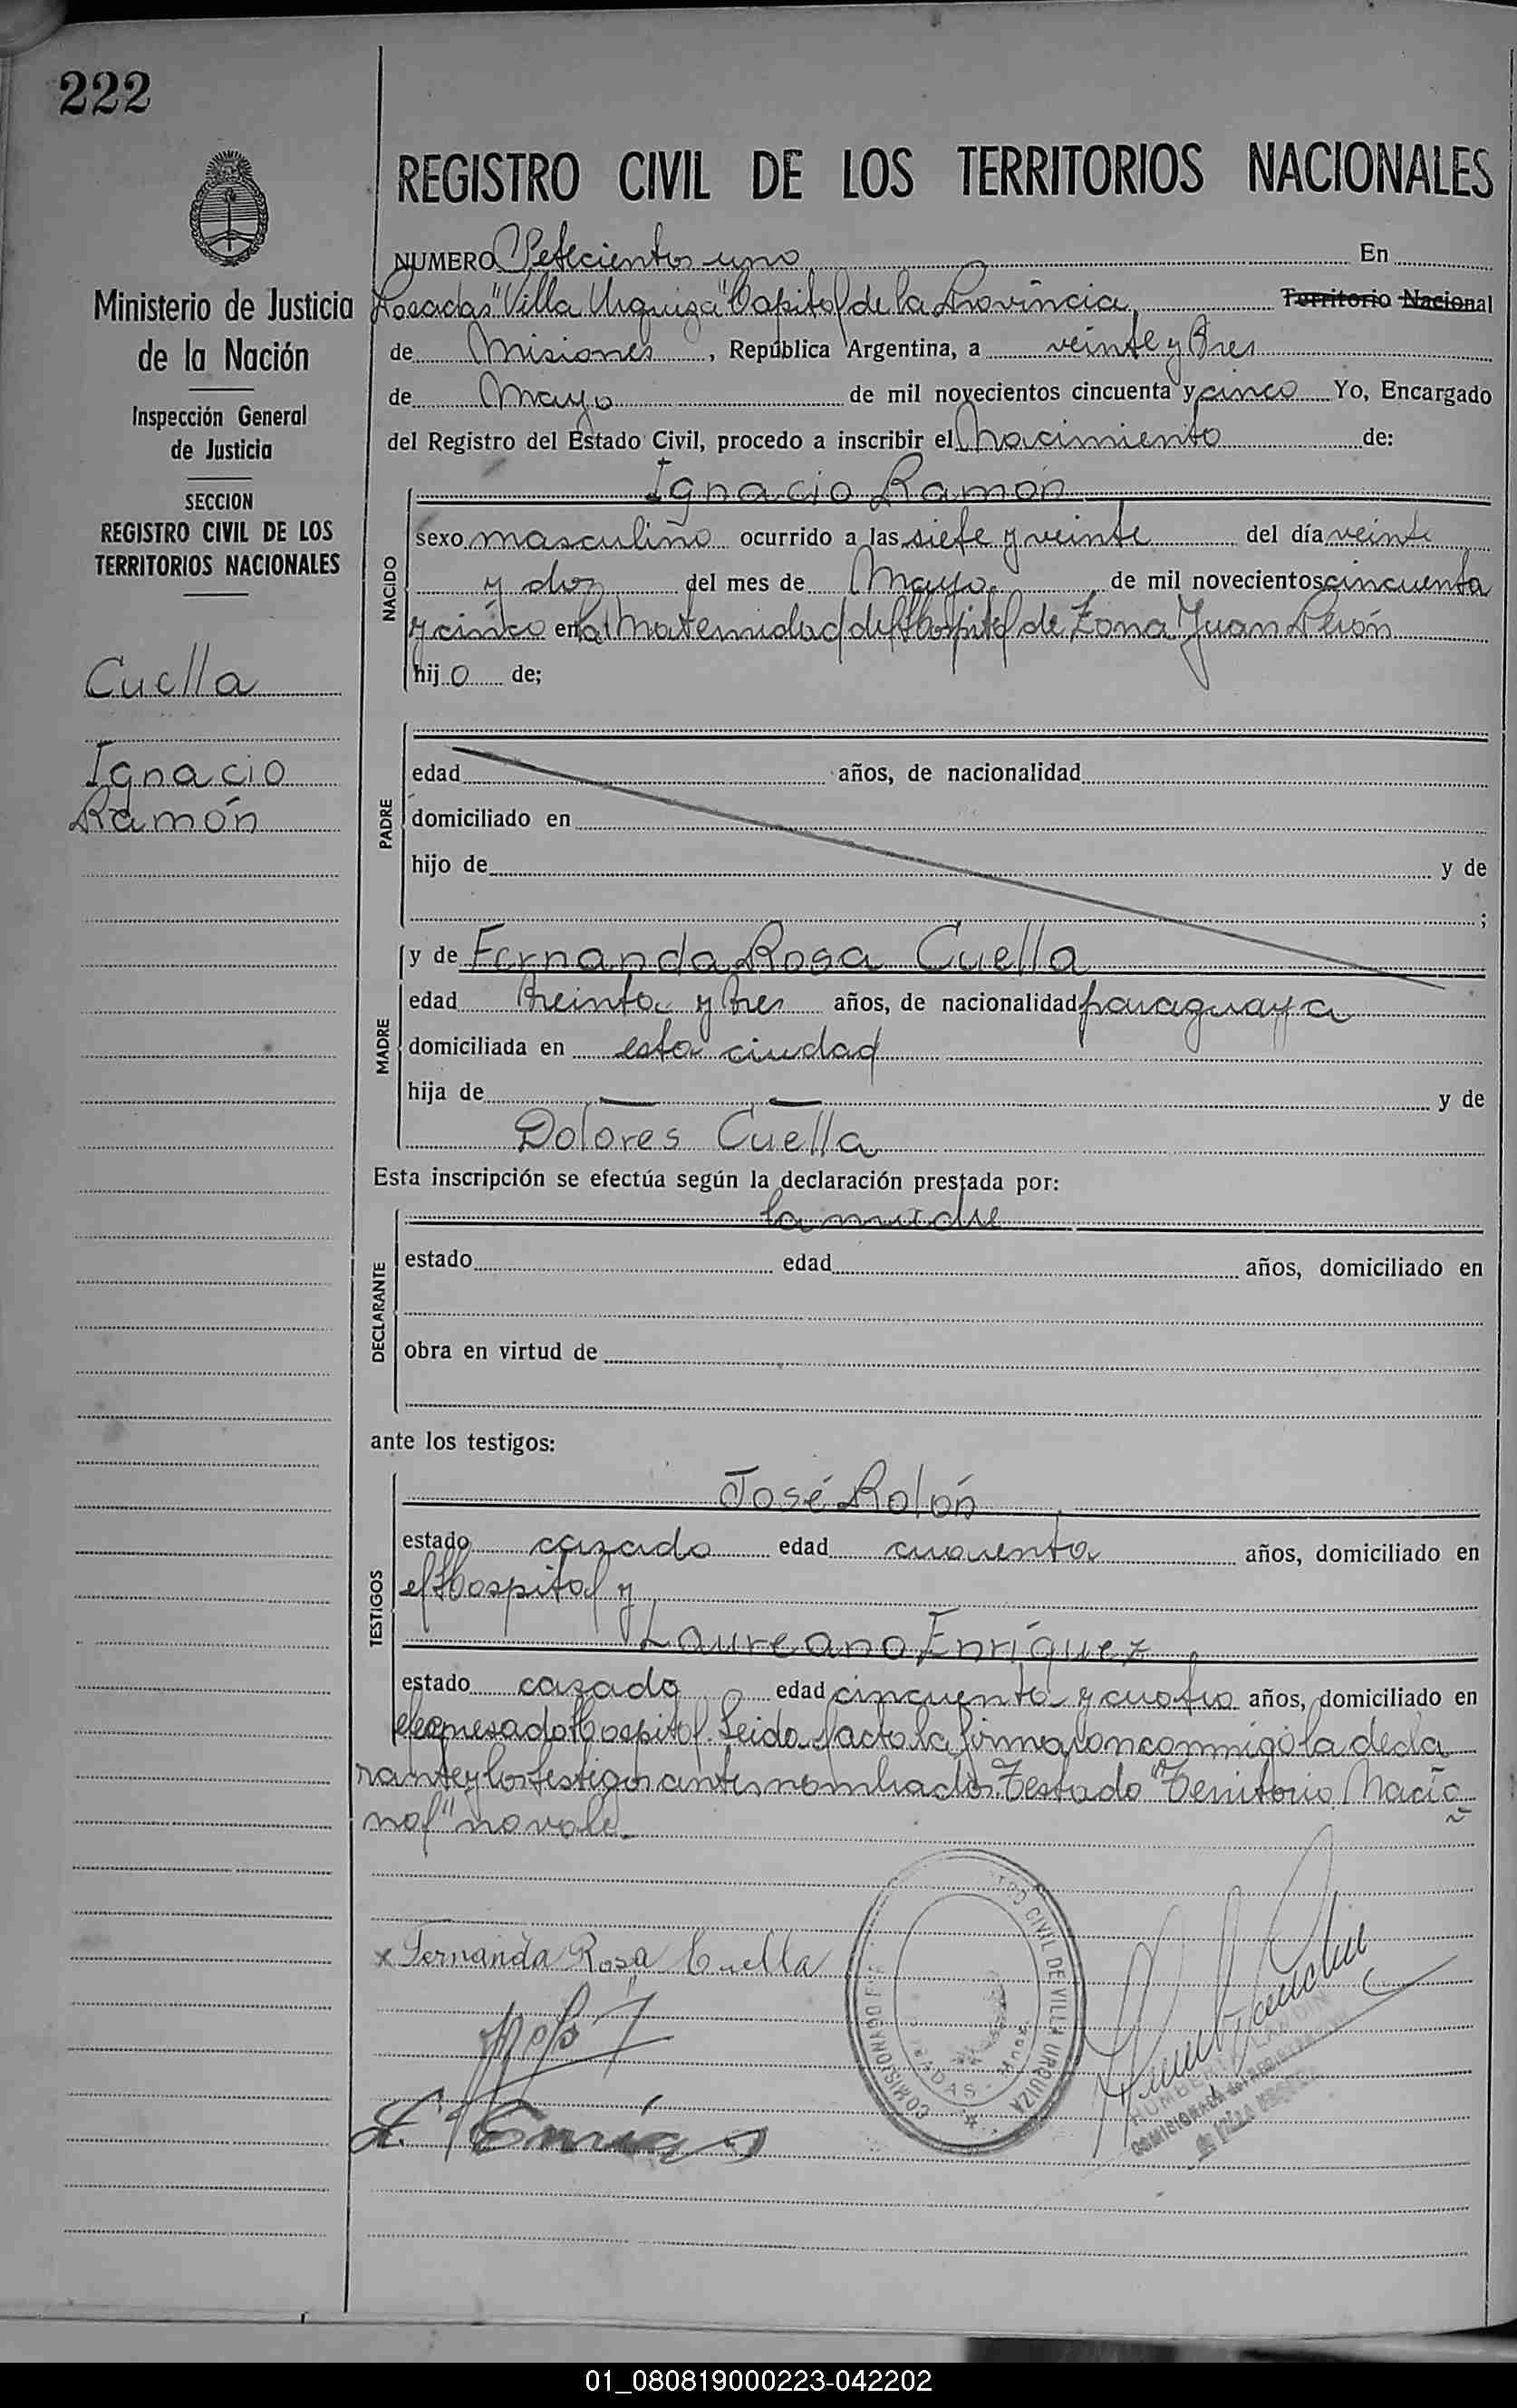 222
REGISTRO CIVIL DE LOS TERRITORIOS NACIONALES
Ministerio de Justicia
de la Nación
Inspección General
de Justicia
SECCION
REGISTRO CIVIL DE LOS
TERRITORIOS NACIONALES
Cuella
Ignacio
Ramón
NUMERO Setecientos uno En
Posadas "Villa Urquiza" Capital de la Provincia Territorio Nacional
de Misiones, República Argentina, a veinte y tres
de Mayo de mil novecientos cincuenta y cinco Yo, Encargado
del Registro del Estado Civil, procedo a inscribir el Nacimiento de:
Ignacio Ramón
NACIDO
sexo masculino ocurrido a las siete y veinte del día veinte
y dos del mes de Mayo de mil novecientos cincuenta
y cinco en la Maternidad del Hospital de Zona Juan Perón
hijo de;
PADRE
edad años, de nacionalidad
domiciliado en
hijo de y de
;
MADRE
y de Fernanda Rosa Cuella
edad treinta y tres años, de nacionalidad paraguaya
domiciliada en esta ciudad
hija de — — y de
Dolores Cuella
Esta inscripción se efectúa según la declaración prestada por:
DECLARANTE
la madre
estado edad años, domiciliado en
obra en virtud de
ante los testigos:
TESTIGOS
José Rolón
estado casado edad cuarenta años, domiciliado en
el Hospital y
Laureano Enríquez
estado casado edad cincuenta y cuatro años, domiciliado en
el expresado Hospital. Leida el acta la firmaron conmigo la decla
rante y los testigos antes nombrados. Testado "Territorio Nacio
nal" no vale.
x Fernanda Rosa Cuella
CIVIL DE VILLA URQUIZA
COMISIONADO
POSADAS - Mnes.